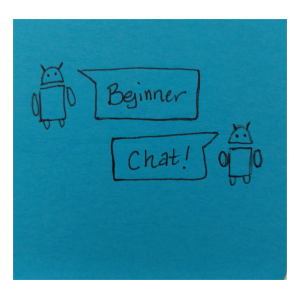 Beginner
Chat!